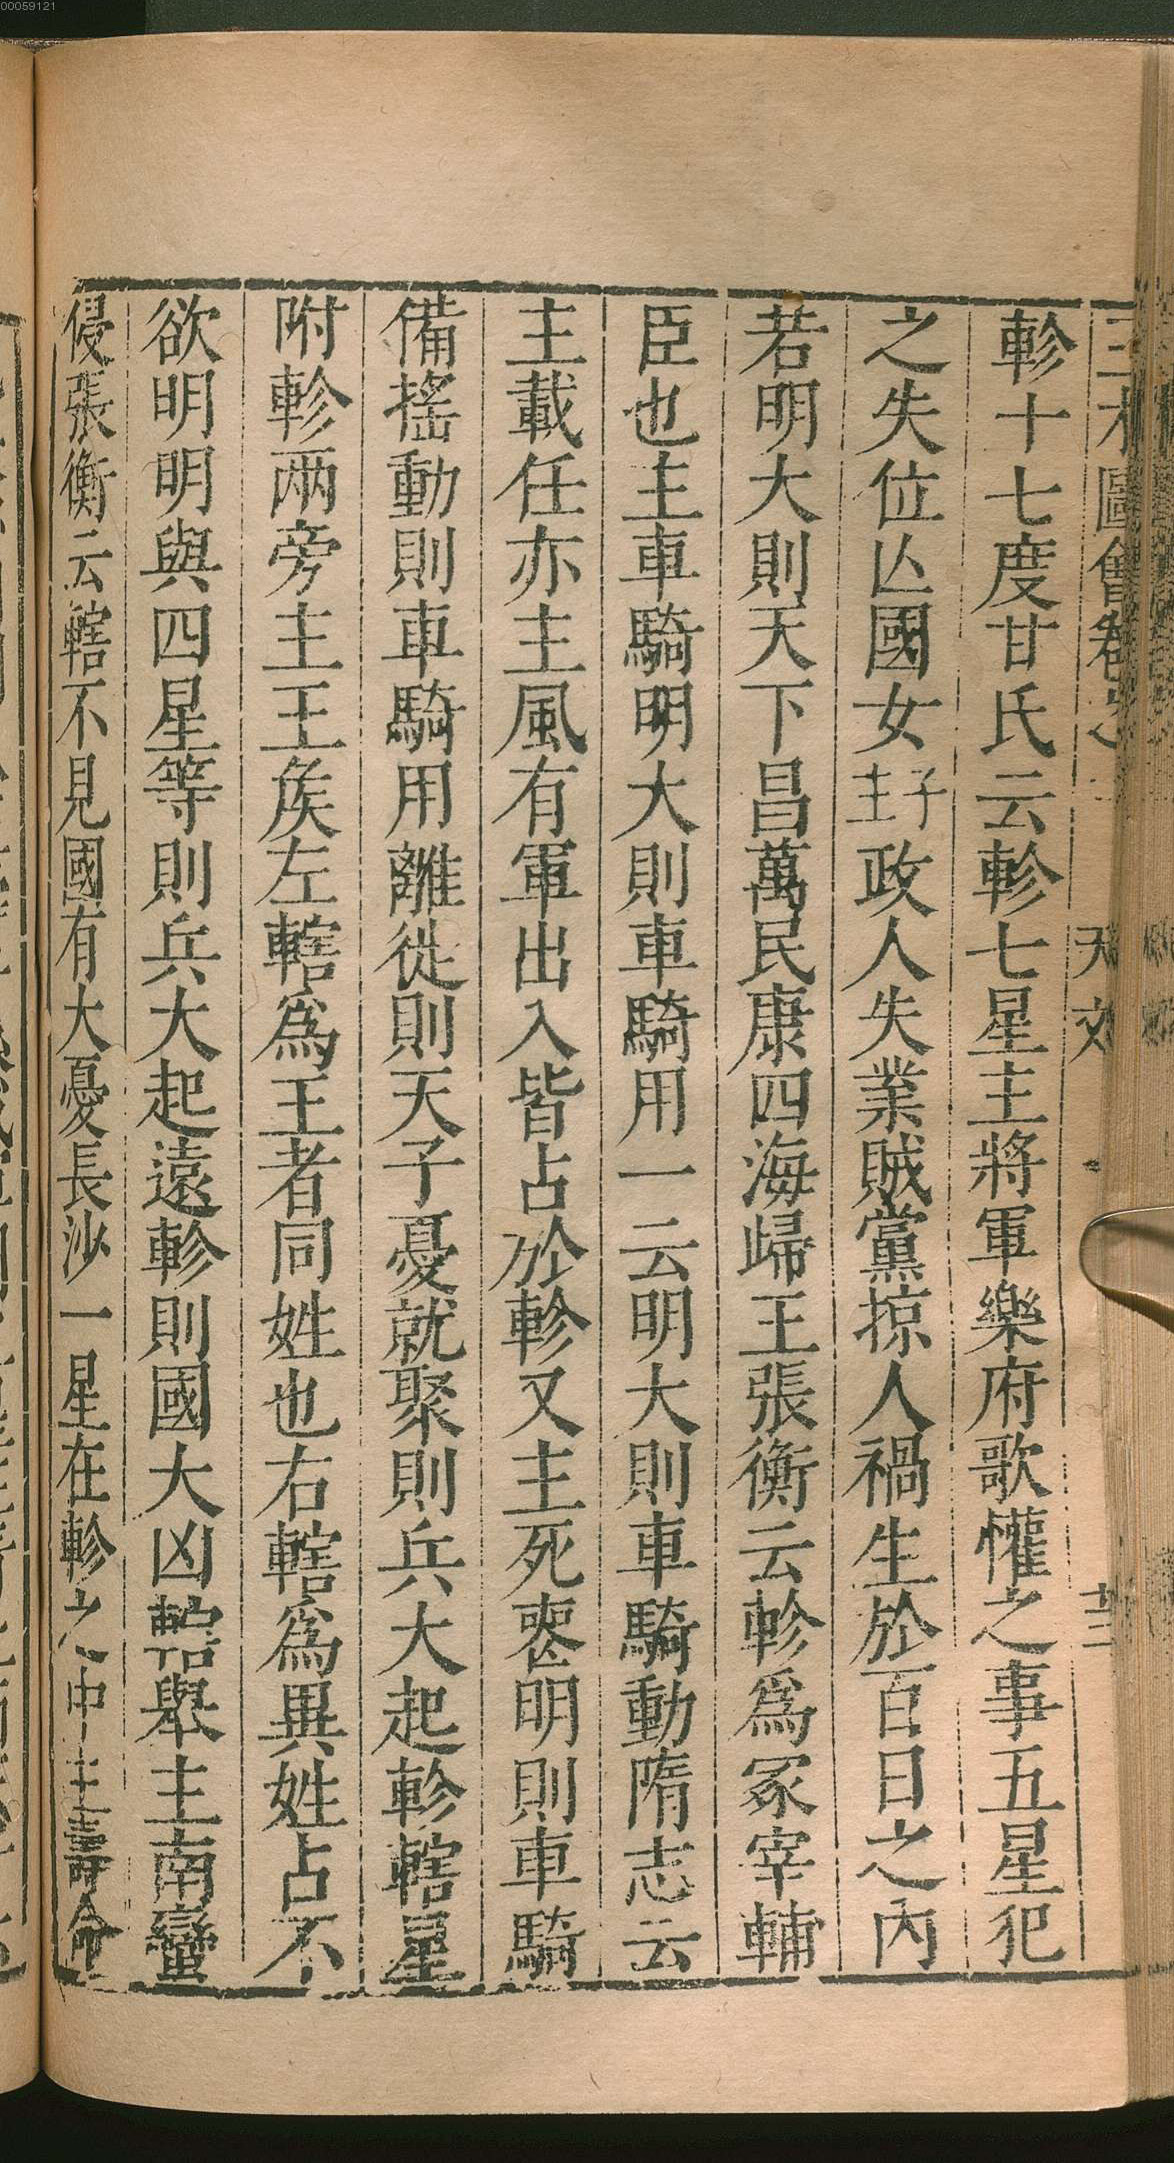 00059121
三才圖會卷之 天文
軫十七度甘氏云軫七星主將軍樂府歌懽之事五星犯
之失位亾國女主子政人失業賊黨掠人禍生於百日之內
若明大則天下昌萬民康四海歸王張衡云軫爲冢宰輔
臣也主車騎明大則車騎用一云明大則車騎動隋志云
主載任亦主風有軍出入皆占於軫又主死喪明則車騎
備搖動則車騎用離徙則天子憂就聚則兵大起軫轄星
附軫兩旁主王矦左轄爲王者同姓也右轄爲異姓占不
欲明明與四星等則兵大起遠軫則國大凶轄舉主南蠻
侵張衡云轄不見國有大憂長沙一星在軫之中主壽命